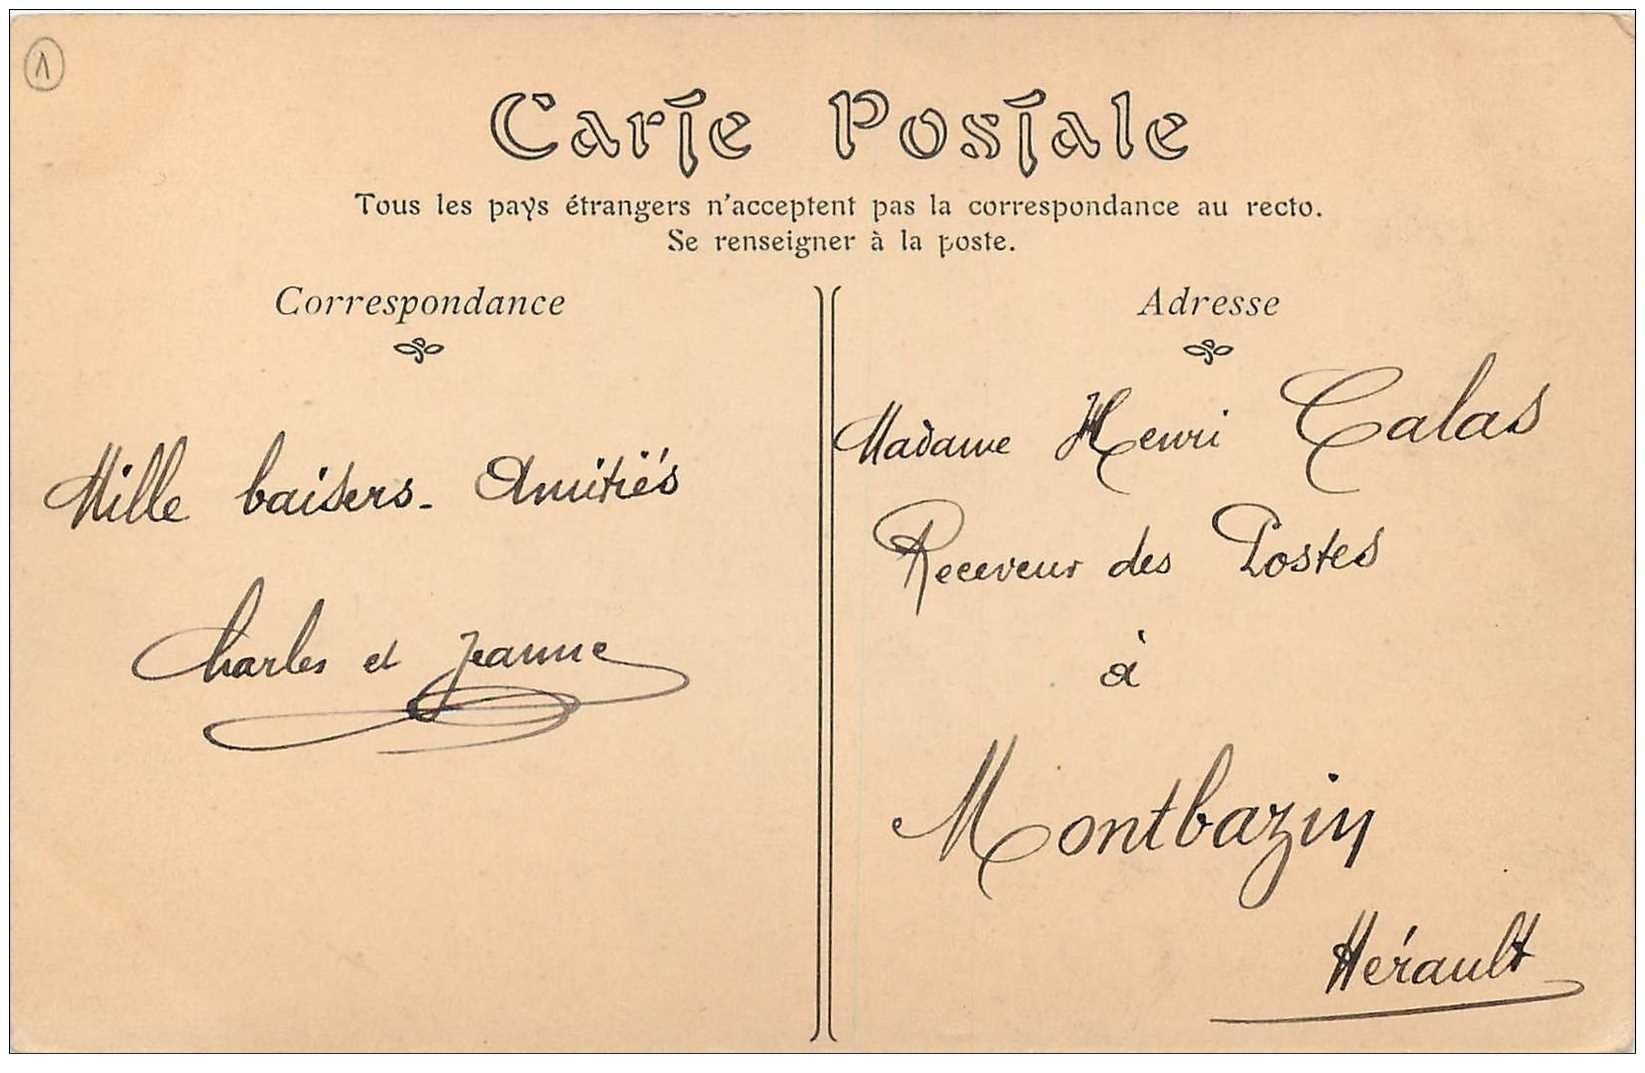 Carte Postale
Tous les pays étrangers n'acceptent pas la correspondance au recto.
Se renseigner à la poste.
Correspondance
Mille baisers - Amitiés
Charles et Jeanne
Adresse
Madame Henri Calas
Receveur des Postes
à
Montbazin
Hérault